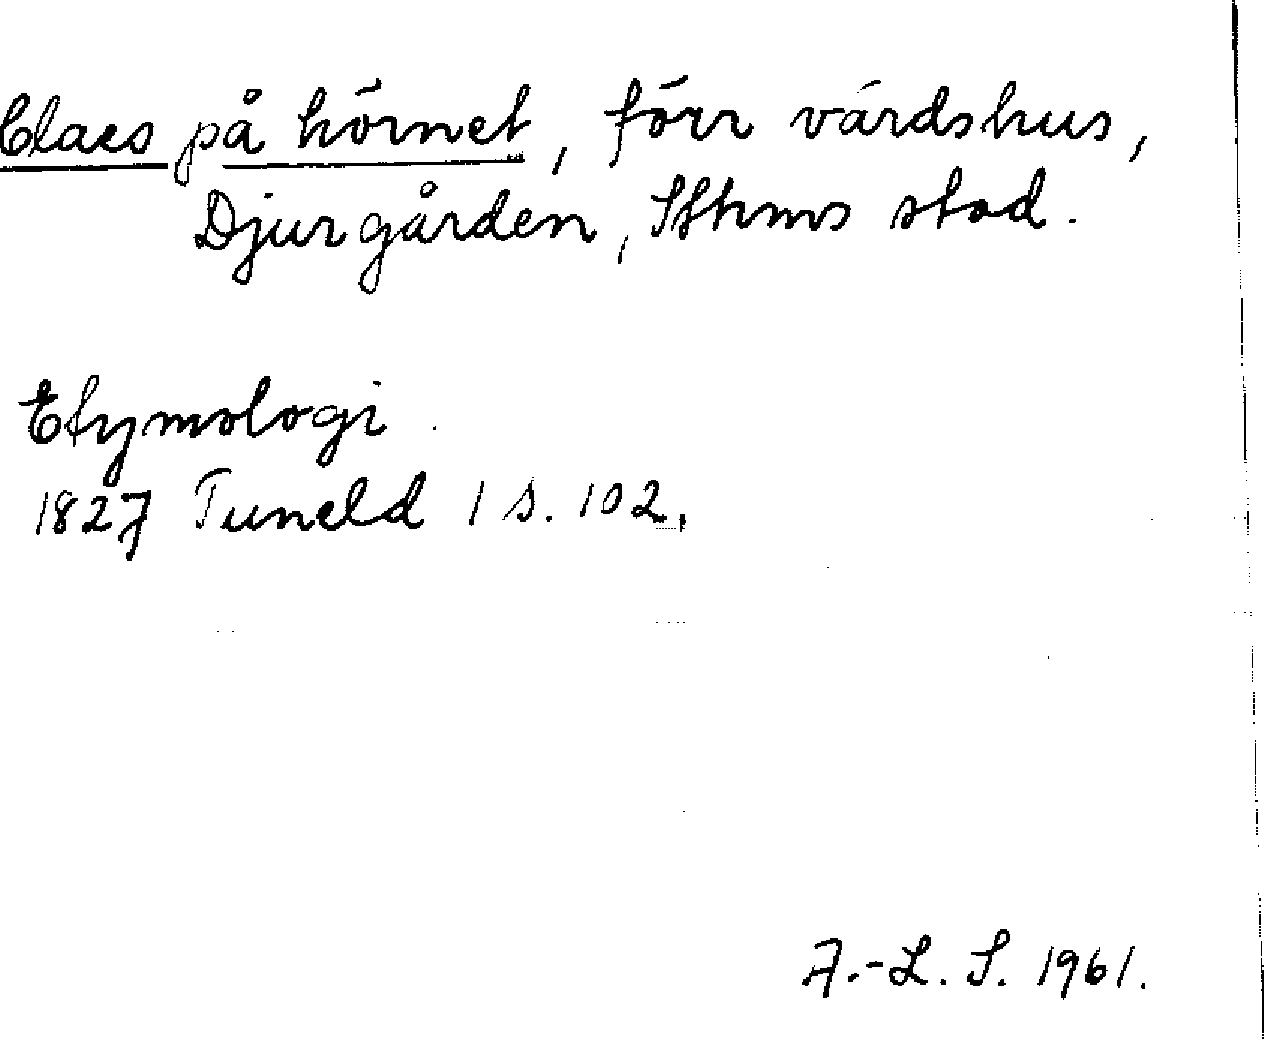 Claes på hörnet, förr värdshus,
Djurgården, Sthms stad.
Etymologi
1827 Tuneld 1 s. 102.
A.-L. S. 1961.